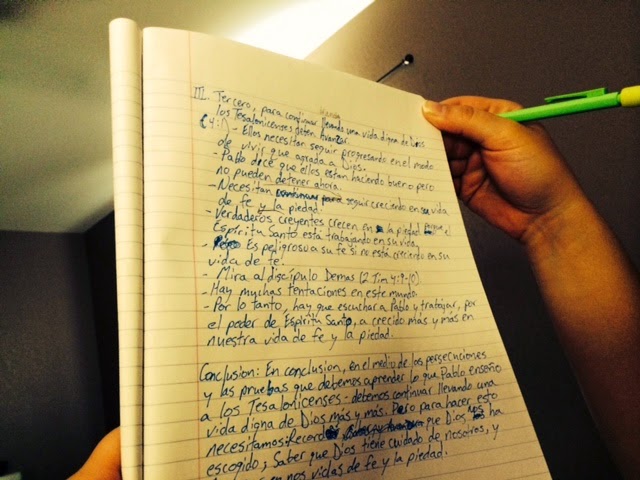 III. Tercero, para continuar llevando una vida digna de Dios
los Tesalonicenses deben Avanzar.
(4:1) - Ellos necesitan seguir progresando en el modo
de vivir que agrada a Dios.
- Pablo dice que ellos estan haciendo bueno pero
no pueden detener ahora.
- Necesitan continuar para seguir creciendo en su vida
de fe y la piedad.
- Verdaderos creyentes crecen en la piedad porque el
Espíritu Santo está trabajando en su vida.
- Pero Es peligroso a su fe si no está creciendo en su
vida de fe.
- Mira al discípulo Demas (2 Tim 4:9-10)
- Hay muchas tentaciones en este mundo.
- Por lo tanto, hay que escuchar a Pablo y trabajar, por
el poder de Espíritu Santo, a crecido más y más en
nuestra vida de fe y la piedad.
Conclusion: En conclusion, en el medio de las persecuciones
y las pruebas que debemos aprender lo que Pablo enseño
a los Tesalonicenses - debemos continuar llevando una
vida digna de Dios más y más. Pero para hacer esto
necesitamos: Record que Dios nos ha
escogido, Saber que Dios tiene cuidado de nosotros, y
en nos vidas de fe y la piedad.